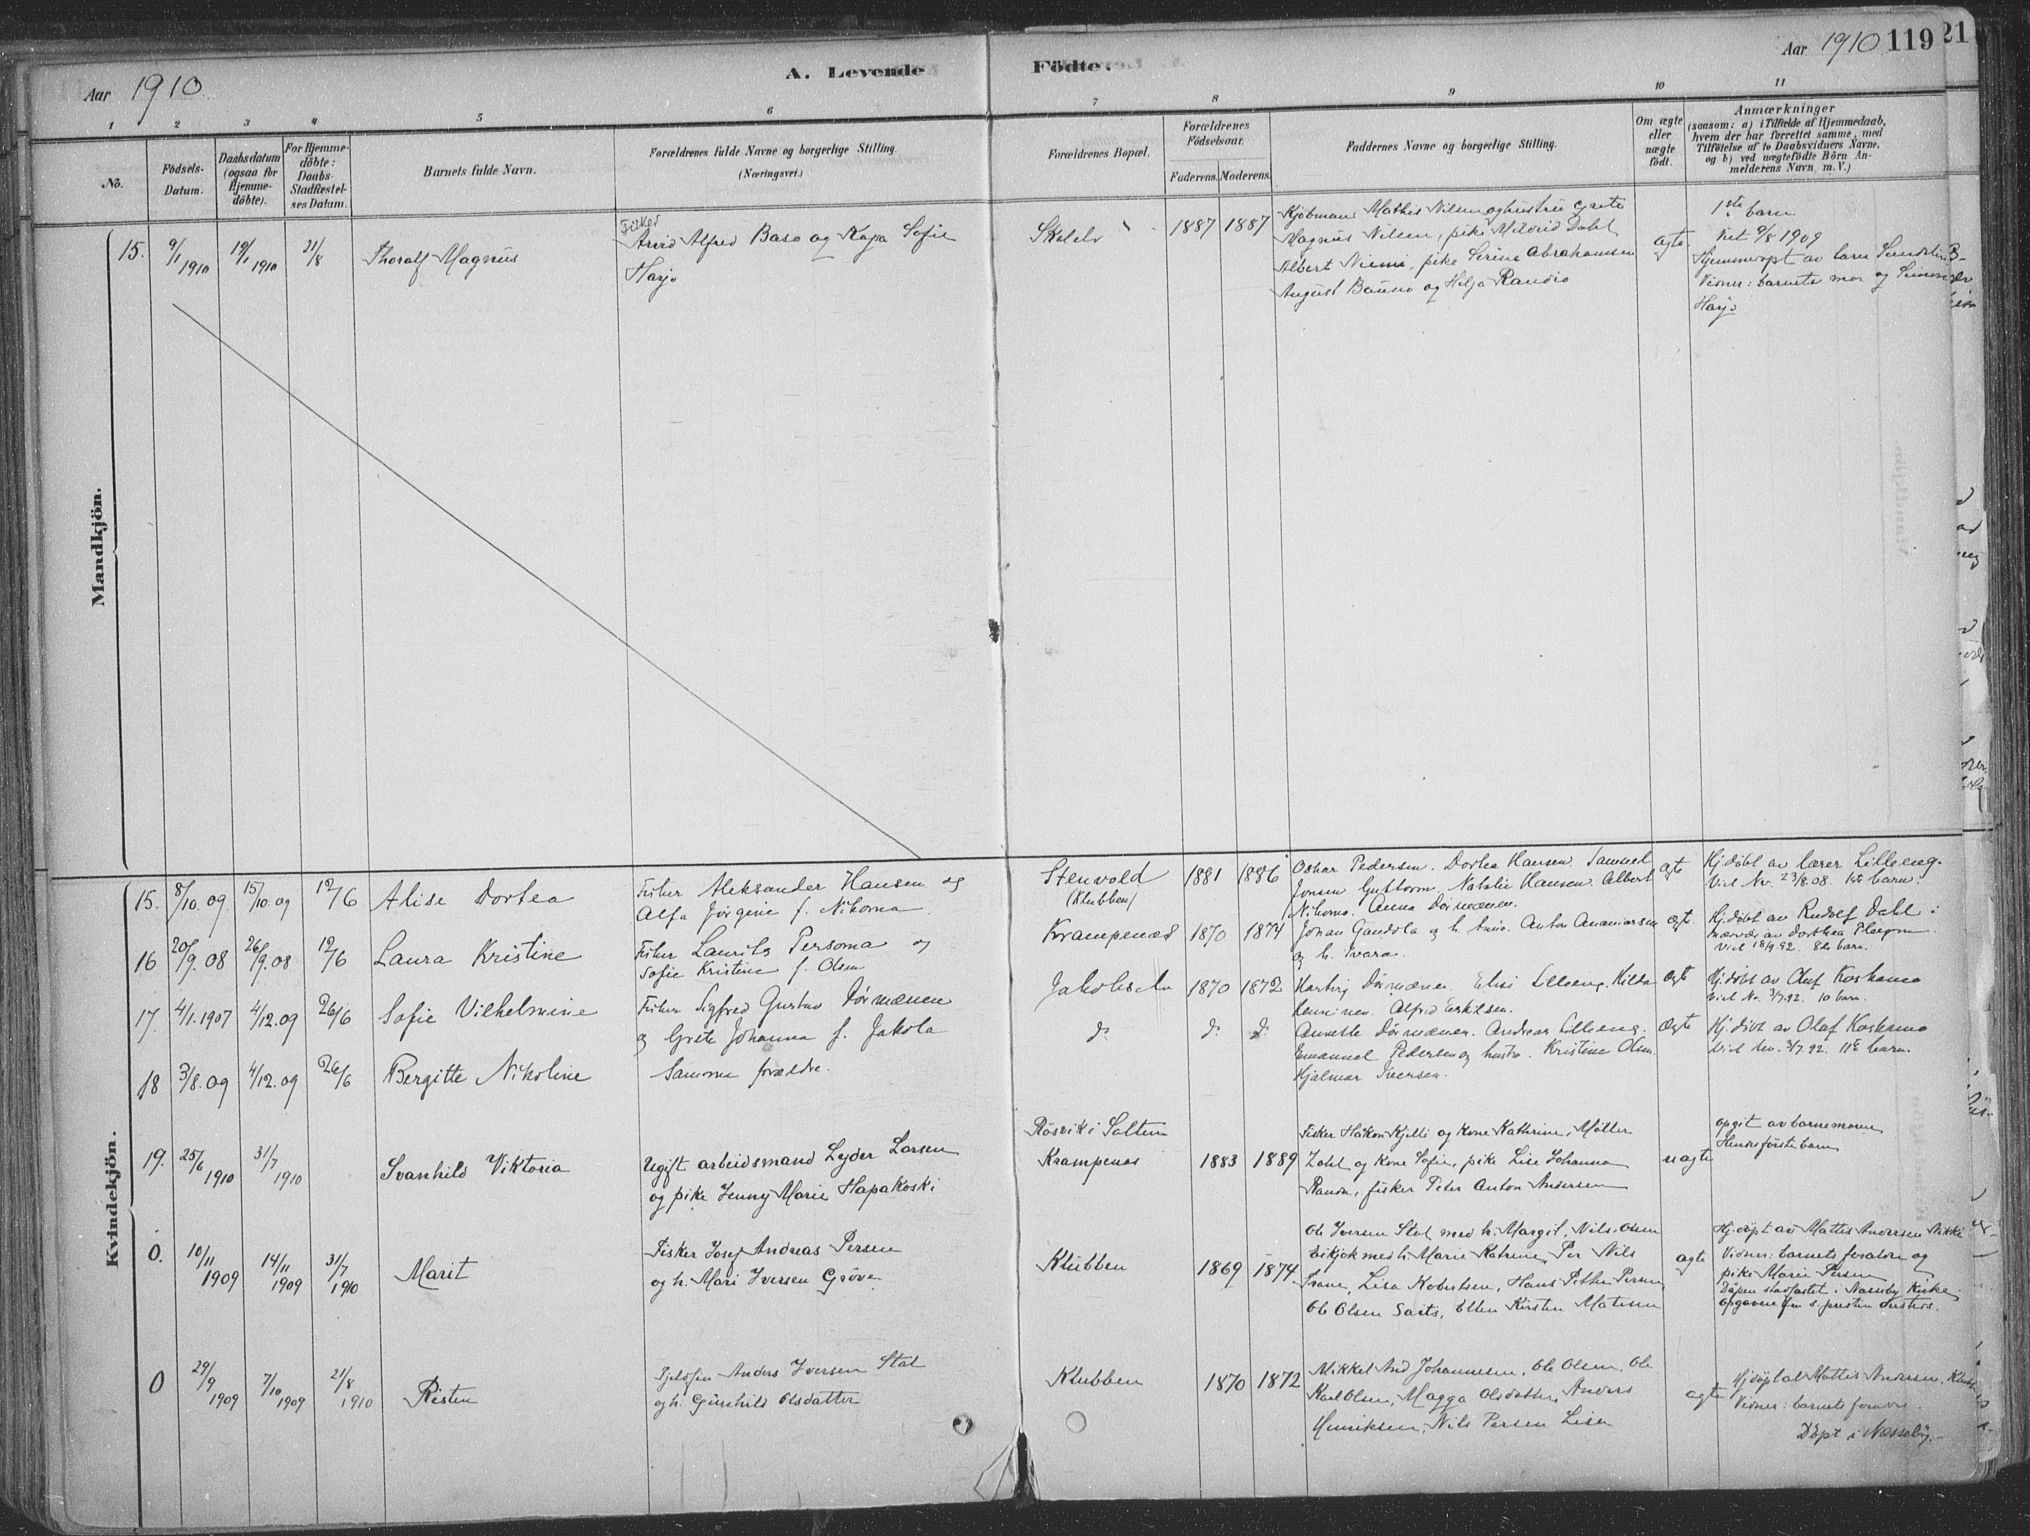 Aar 1910
A. Levende
Födte.
Aar 1910 119
21
1 2 3 4 5 6 7 8 9 10 11
Nô.
Födsels-
Datum.
Daabsdatum
(ogsaa for
Hjemme-
döbte).
For Hjemme-
döbte:
Daabs-
Stadfæstel-
ses Datum.
Barnets fulde Navn.
Forældrenes fulde Navne og borgerlige Stilling.
(Næringsvei.)
Forældrenes Bopæl.
Forældrenes
Födselsaar.
Faderens. Moderens.
Faddernes Navne og borgerlige Stilling.
Om ægte
eller
uægte
födt.
Anmærkninger
(saasom: a) i Tilfælde af Hjemmedaab,
hvem der har forrettet samme, med
Tilföielse af to Daabsvidners Navne,
og b) ved uægtefödte Börn An-
melderens Navn m. V.)
Mandkjön.
15. 9/1 1910 19/1 1910 21/8 Thoralf Magnus
Fisker
Arvid Alfred Baso og Kaja Sofie
Harjo
1887 1887
Kjöbmand Mathis Nilsen og hustru Grete
Magnus Nilsen, pike Milvrid Dahl
Albert Niemi, pike Serine Abrahamsen
August Bauno og Hilja Randio
ægte
1ste barn
Viet 9/8 1909
Hjemmedöpt av barn
Vidner: barnets mor og
Harjo
Kvindekjön.
15. 8/10.09 15/10.09 12/6 Alise Dortea
Fisker Aleksander Hansen og
Alfa Jörgine f. Nikoma
Stenvold
(Klubben)
1881 1886
Oskar Pedersen. Dortea Hansen. Samuel
Jonsen Guttorm. Natalie Hansen. Albert
Nikoma. Anna Dörmænen.
ægte
Hj.döbt av lærer Lilleeng.
Viet Nv. 23/8.08. 1ste barn.
16 20/9.08 26/9.08 12/6 Laura Kristine
Fisker Laurits Persoma og
Sofie Kristine f. Olsen
Krampenæs
1870 1874
Johan Gandola og h. Anton Ananiassen
og h. Ivara.
ægte
Hj.döbt av Rudolf Dahl i
nærvær av Dorthea
Viet 18/9.92. 8de barn.
17. 4/1.1907 4/12.09 26/6 Sofie Vilhelmine
Fisker Sigfred Gustav Dörmænen
og Grete Johanna f. Jakola
Jakobselv
1870 1872
Hartvig Dörmænen. Elise Lilleeng. Hilda
Henriksen. Alfred Eskilsen.
ægte
Hj.döbt av Olaf Koskamo
Viet Nv. 3/7.92. 10 barn.
18 3/8.09 4/12.09 26/6 Bergitte Nikoline
Samme forældre.
do do do
Annette Dörmænen. Andreas Lilleeng.
Emanuel Pedersen og hustru. Kristine Olsen.
Hjalmar Iversen.
ægte
Hj.döbt av Olaf Koskamo
Viet Nv. 3/7.92. 11te barn.
19. 25/6 1910 31/7 1910 Svanhild Viktoria
Ugift arbeidsmand Lyder Larsen
og pike Jenny Marie Hapakoski
Rösvik i Salten
Krampenæs
1883 1889
Fisker Håkon Kjelli og kone Kathrine. Möller
Zahl og kone Sofie, pike Lise Johanna
fisker Peter Anton Andersen
uægte
opgit av barnemoren
Hendes förste barn
0. 10/11 1909 14/11 1909 31/7 1910 Marit
Fisker Josef Andreas Persen
og h. Mari Iversen
Klubben
1869 1874
Ole Iversen Stal med h. Margit. Nils Olsen
med h. Marie Katrine, Per Nils
Lisa Robertsen, Hans Petter Persen,
Ole Olsen Ellen Kirsten Matisen
ægte
Hj.döpt av Mattis Andersen Nikki
Vidner: barnets forældre og
pike Marie Persen
Dåpen stadfæstet i Næsseby Kirke
0 29/9 1909 7/10 1909 21/8 1910 Risten
Fjeldfin Anders Iversen Stal
og h. Gunhild Olsdatter
Klubben
1870 1872
Mikkel And Johannesen, Ole Olsen, Ole
Karl Olsen, Magga Olsdatter, Anders
Henriksen, Nils Persen Lisa
ægte
Hj.döpt af Mattis Andersen,
Vidner: barnets forældre.
Döpt i Næsseby.